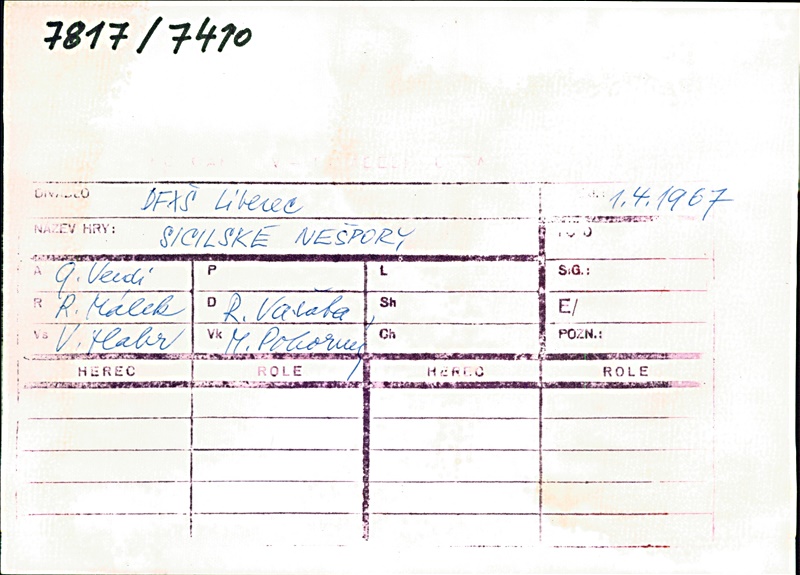 7817/7410
DIVADLO DFXŠ Liberec 1.4.1967
NÁZEV HRY: SICILSKÉ NEŠPORY
A G. Verdi P L SIG.:
R R. Málek D R. Vašata Sh E/
Vs V. Habr Vk M. Pokorný Ch POZN.:
HEREC ROLE HEREC ROLE